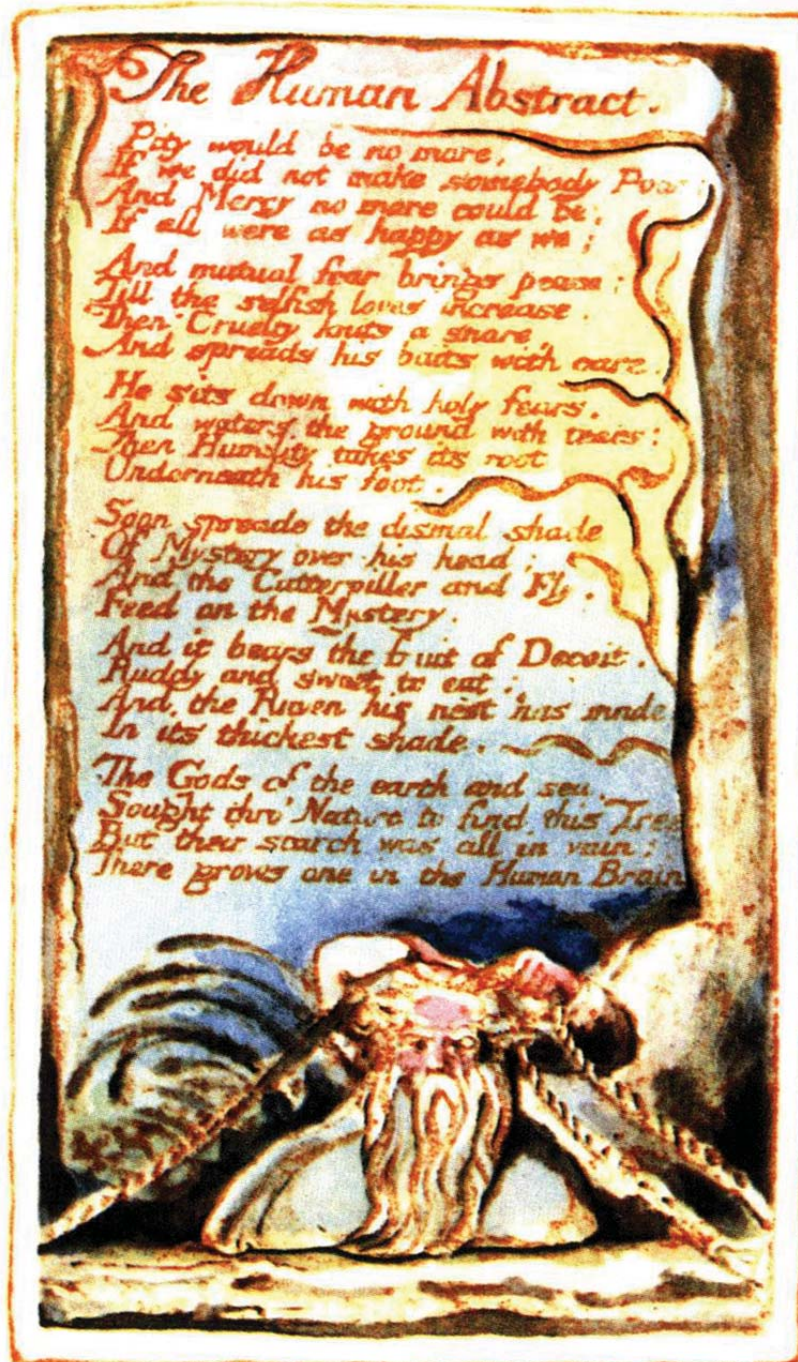 The Human Abstract.
Pity would be no more,
If we did not make somebody Poor:
And Mercy no more could be,
If all were as happy as we;
And mutual fear brings peace;
Till the selfish loves increase.
Then Cruelty knits a snare,
And spreads his baits with care.
He sits down with holy fears,
And waters the ground with tears:
Then Humility takes its root
Underneath his foot.
Soon spreads the dismal shade
Of Mystery over his head;
And the Catterpiller and Fly,
Feed on the Mystery.
And it bears the fruit of Deceit,
Ruddy and sweet to eat;
And the Raven his nest has made
In its thickest shade.
The Gods of the earth and sea,
Sought thro' Nature to find this Tree
But their search was all in vain;
There grows one in the Human Brain